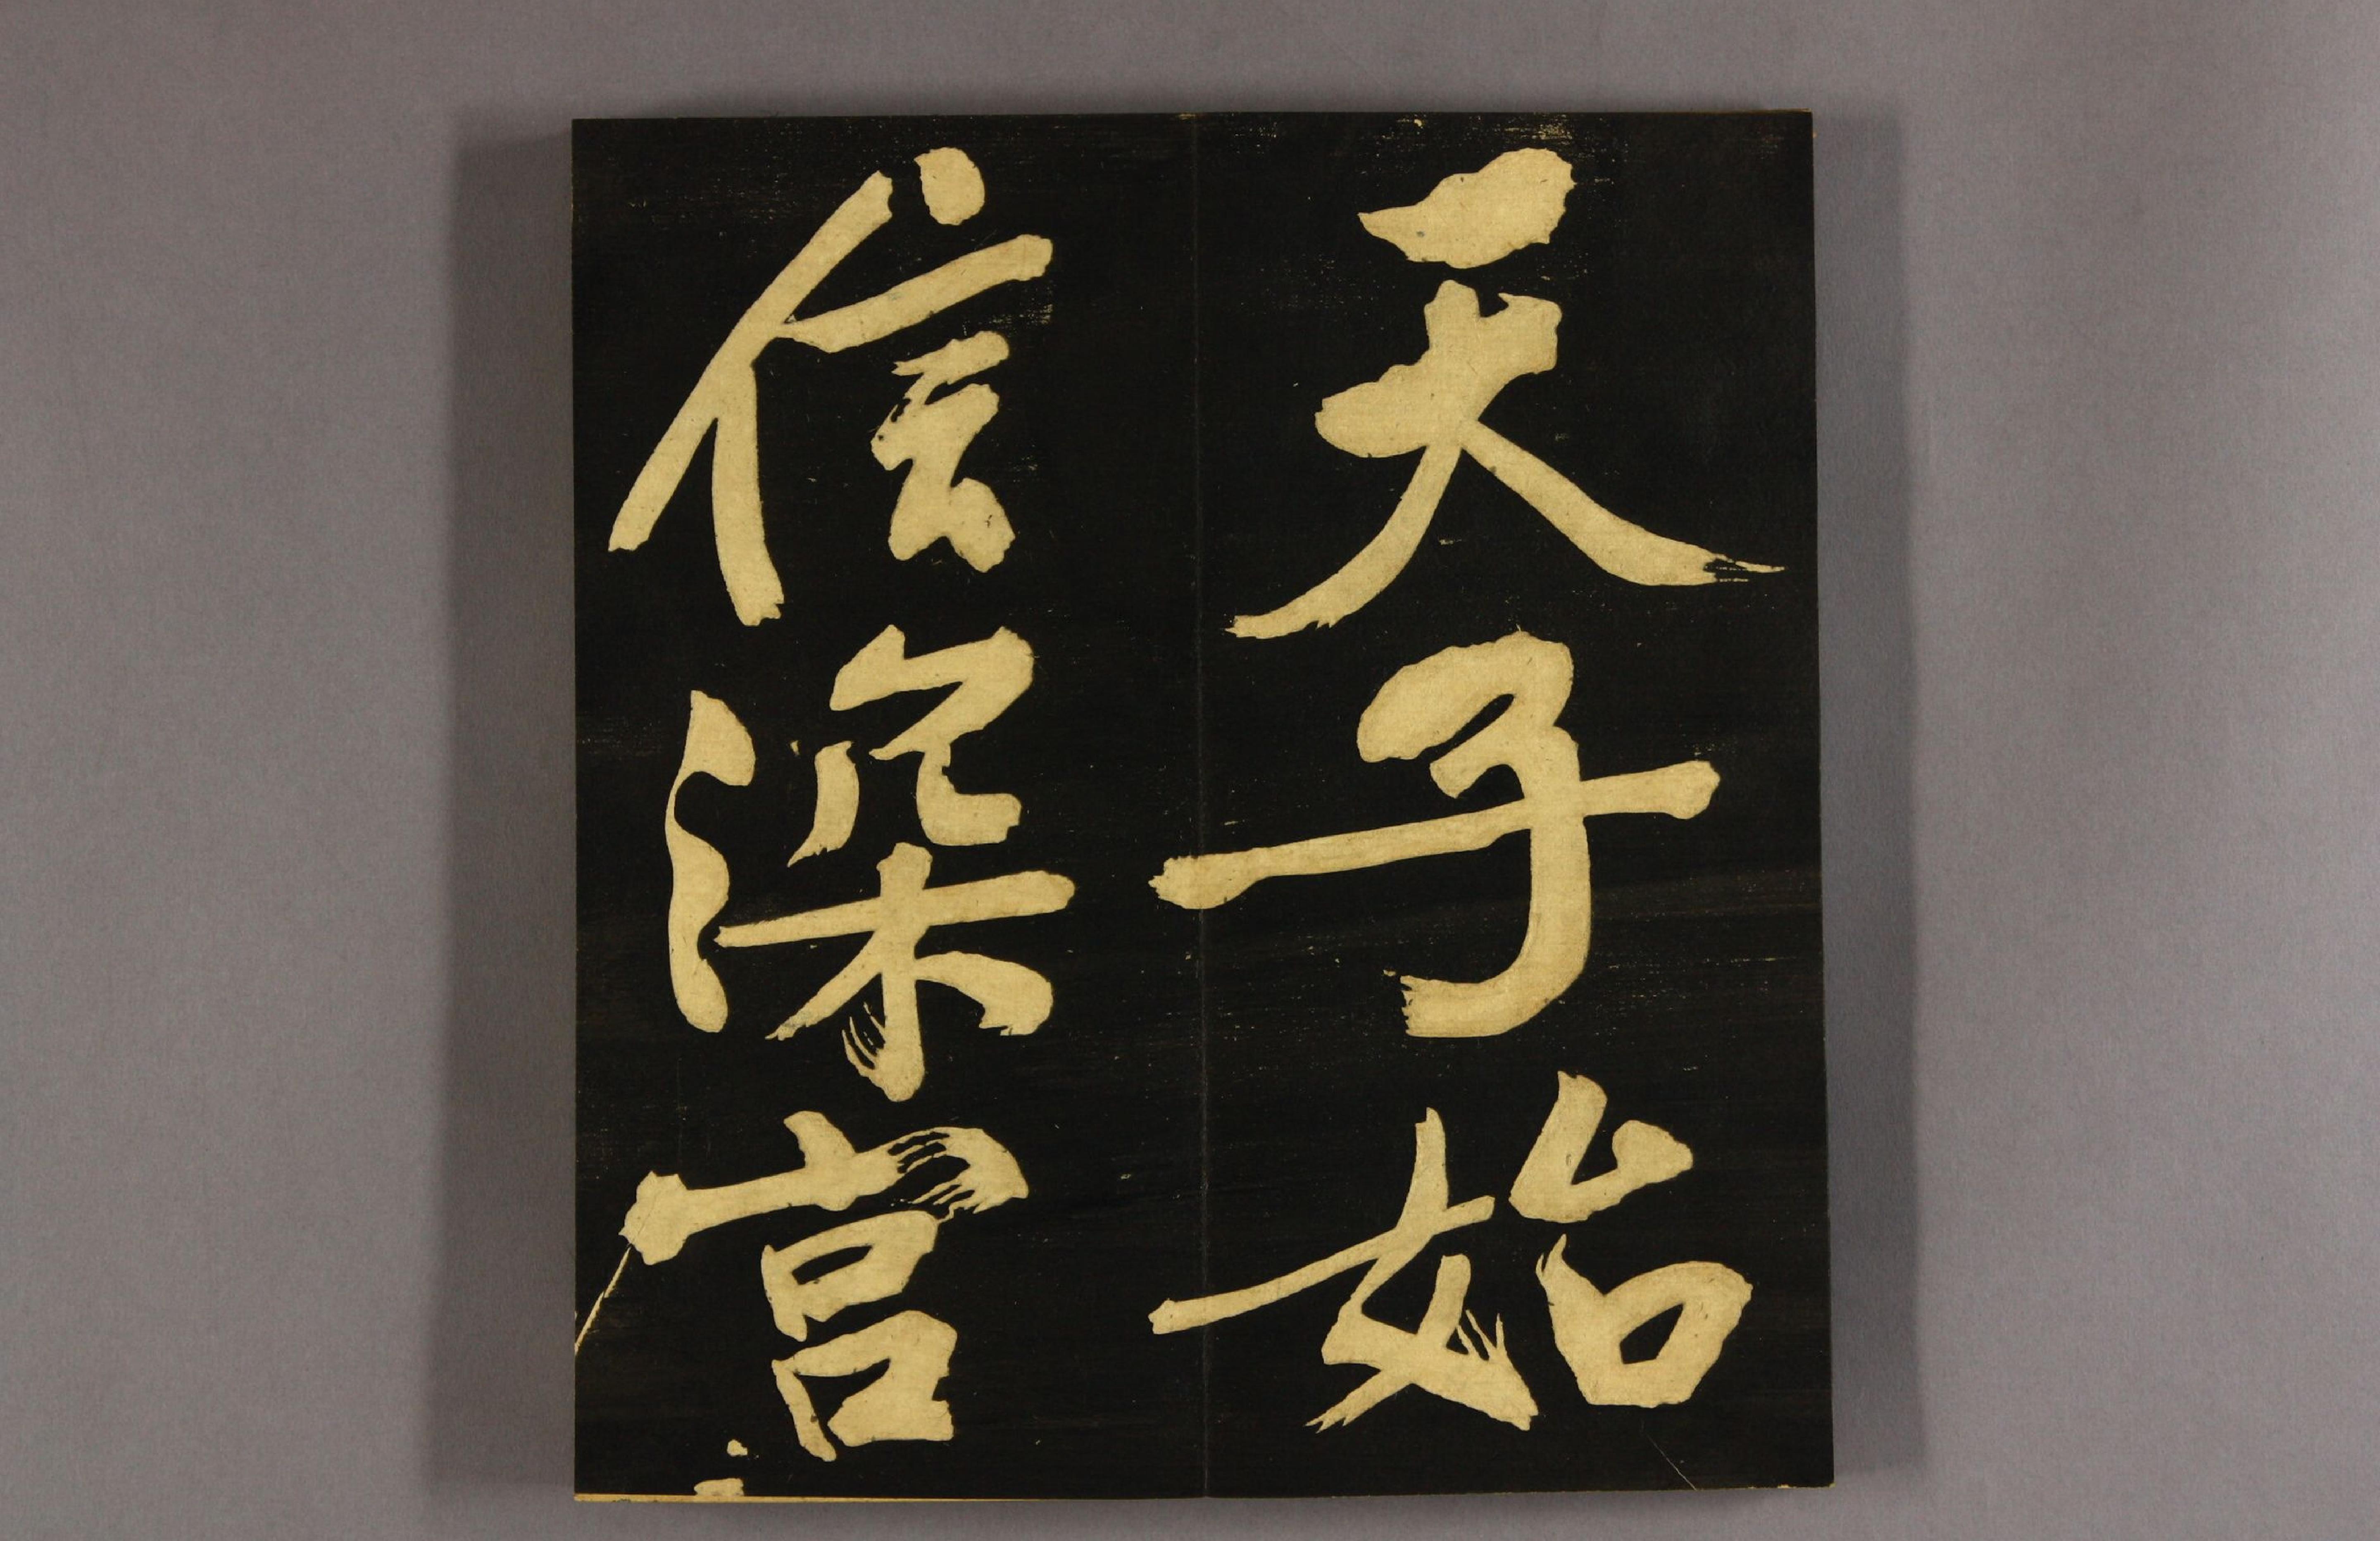 天子始
信深宮